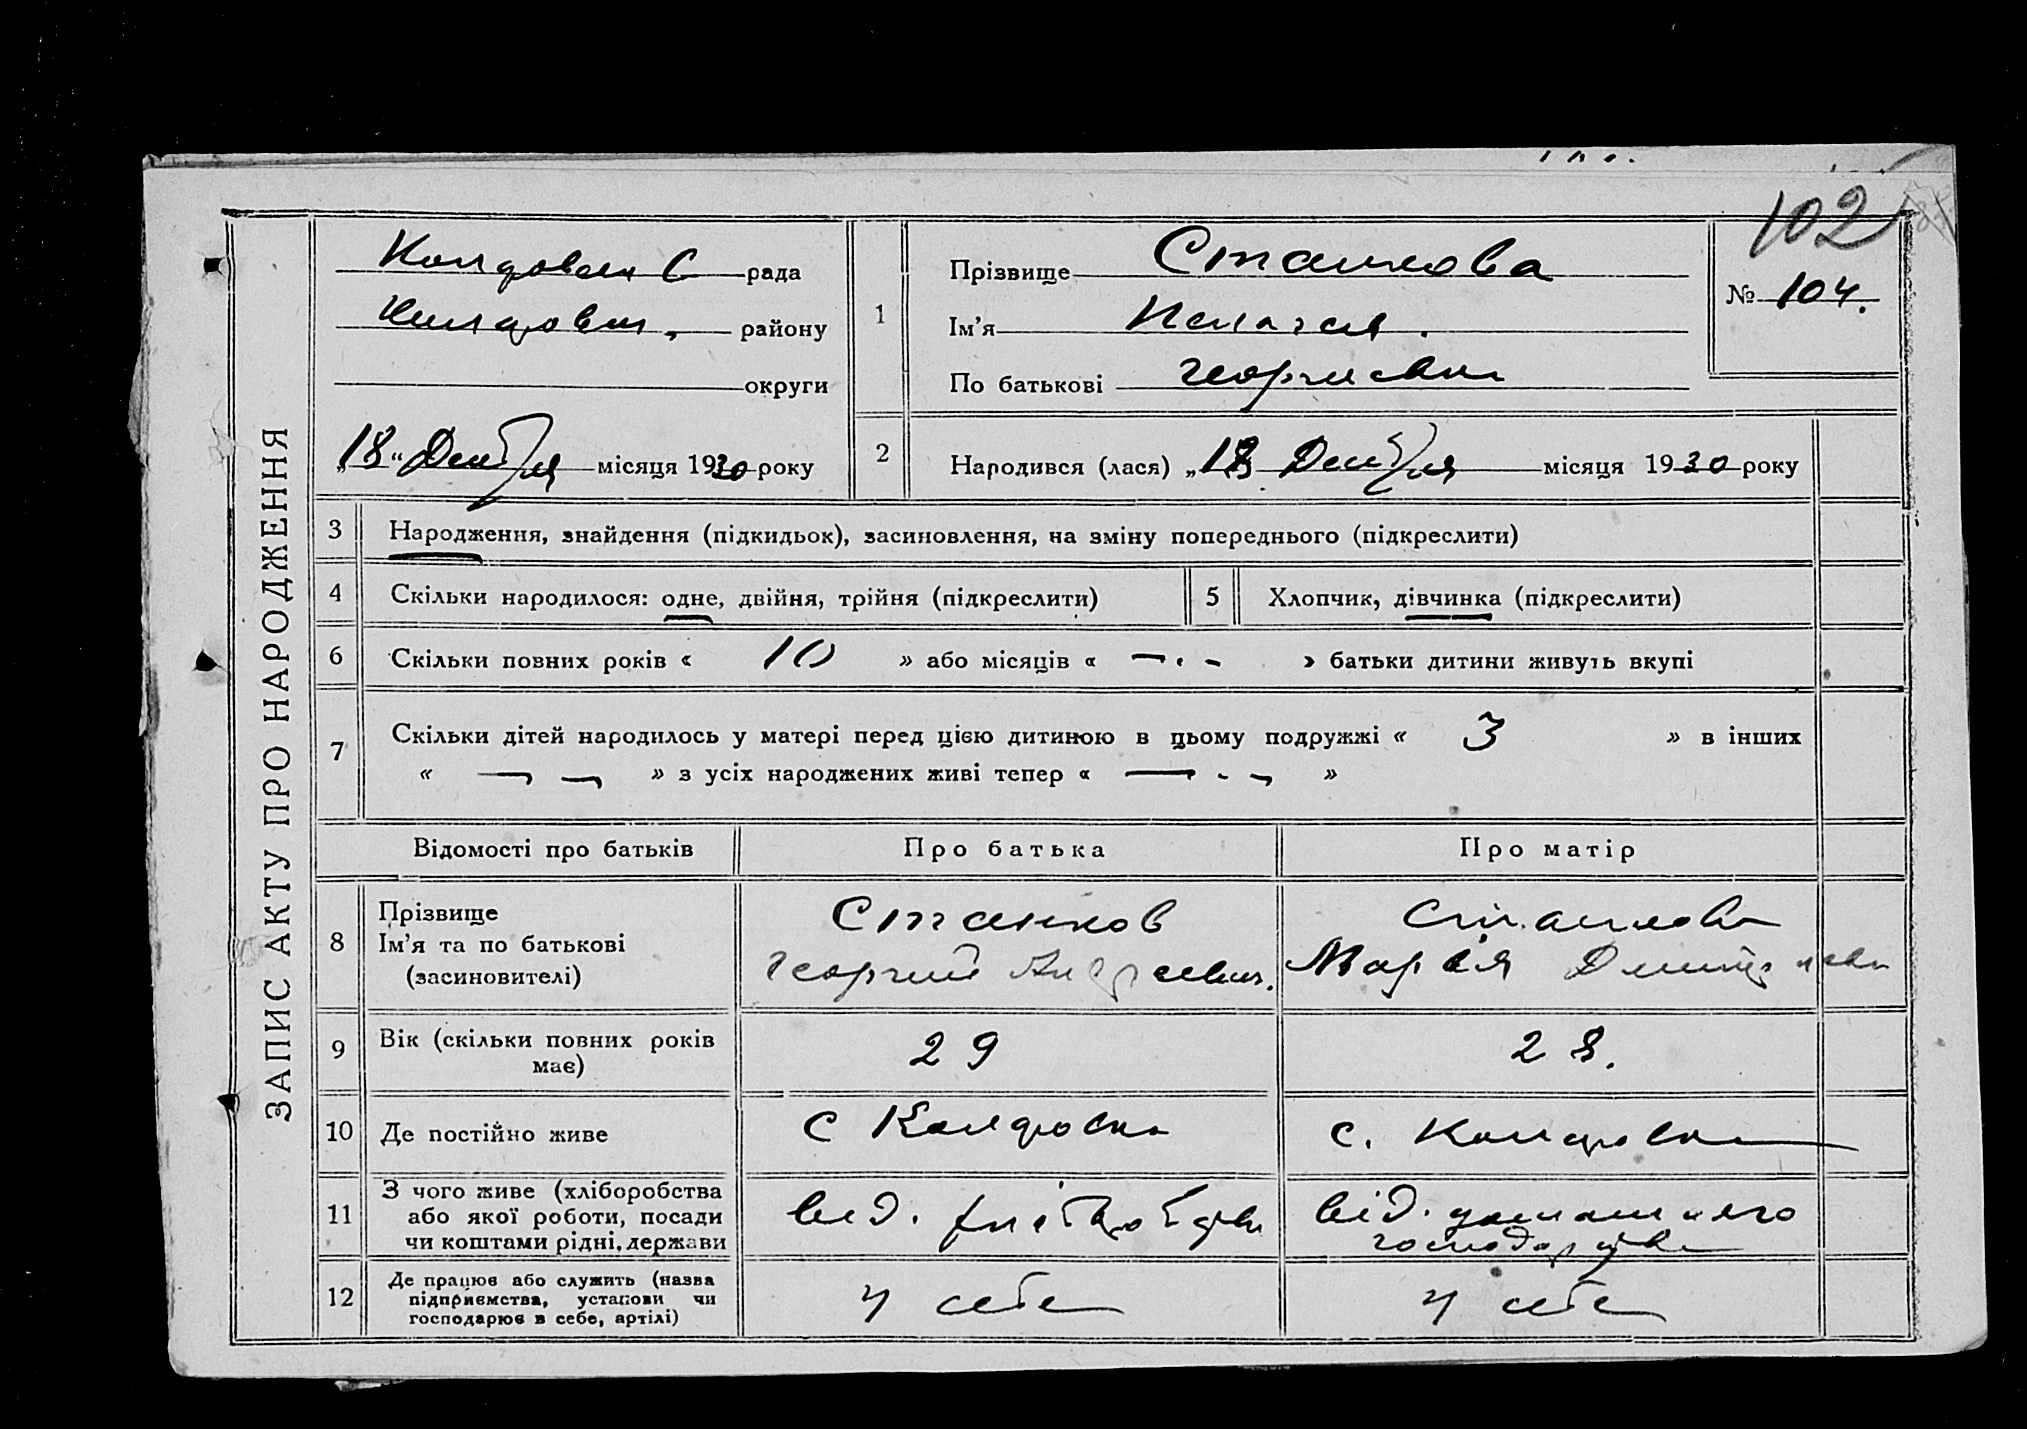 102
ЗАПИС АКТУ ПРО НАРОДЖЕННЯ
рада
району
округи
„18“ Декабря місяця 1930 року
1
Прізвище Станкова
Ім'я Пелагея.
По батькові Георгиевна
№ 104.
2
Народився (лася) „18 Декабря місяця 1930 року
3 Народження, знайдення (підкидьок), засиновлення, на зміну попереднього (підкреслити)
4 Скільки народилося: одне, двійня, трійня (підкреслити)
5 Хлопчик, дівчинка (підкреслити)
6 Скільки повних років « 10 » або місяців « — · - » батьки дитини живуть вкупі
7 Скільки дітей народилось у матері перед цією дитиною в цьому подружжі « 3 » в інших
« — — » з усіх народжених живі тепер « — - - »
Відомості про батьків Про батька Про матір
8 Прізвище Станков Станкова
Ім'я та по батькові Георгий Андреевич. Мария Дмитриевна
(засиновителі)
9 Вік (скільки повних років 29 28.
має)
10 Де постійно живе с
с.
11 З чого живе (хліборобства від. хліборобства від. домашнього
або якої роботи, посади господарства
чи коштами рідні, держави
12 Де працює або служить (назва у себе у себе
підприємства, установи чи
господарює в себе, артілі)